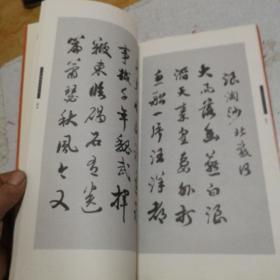 浪淘沙北戴河
大雨落幽燕白浪
滔天秦皇岛外打
鱼船一片汪洋都
事越千年魏武挥
鞭东临碣石有遗
篇萧瑟秋风今又